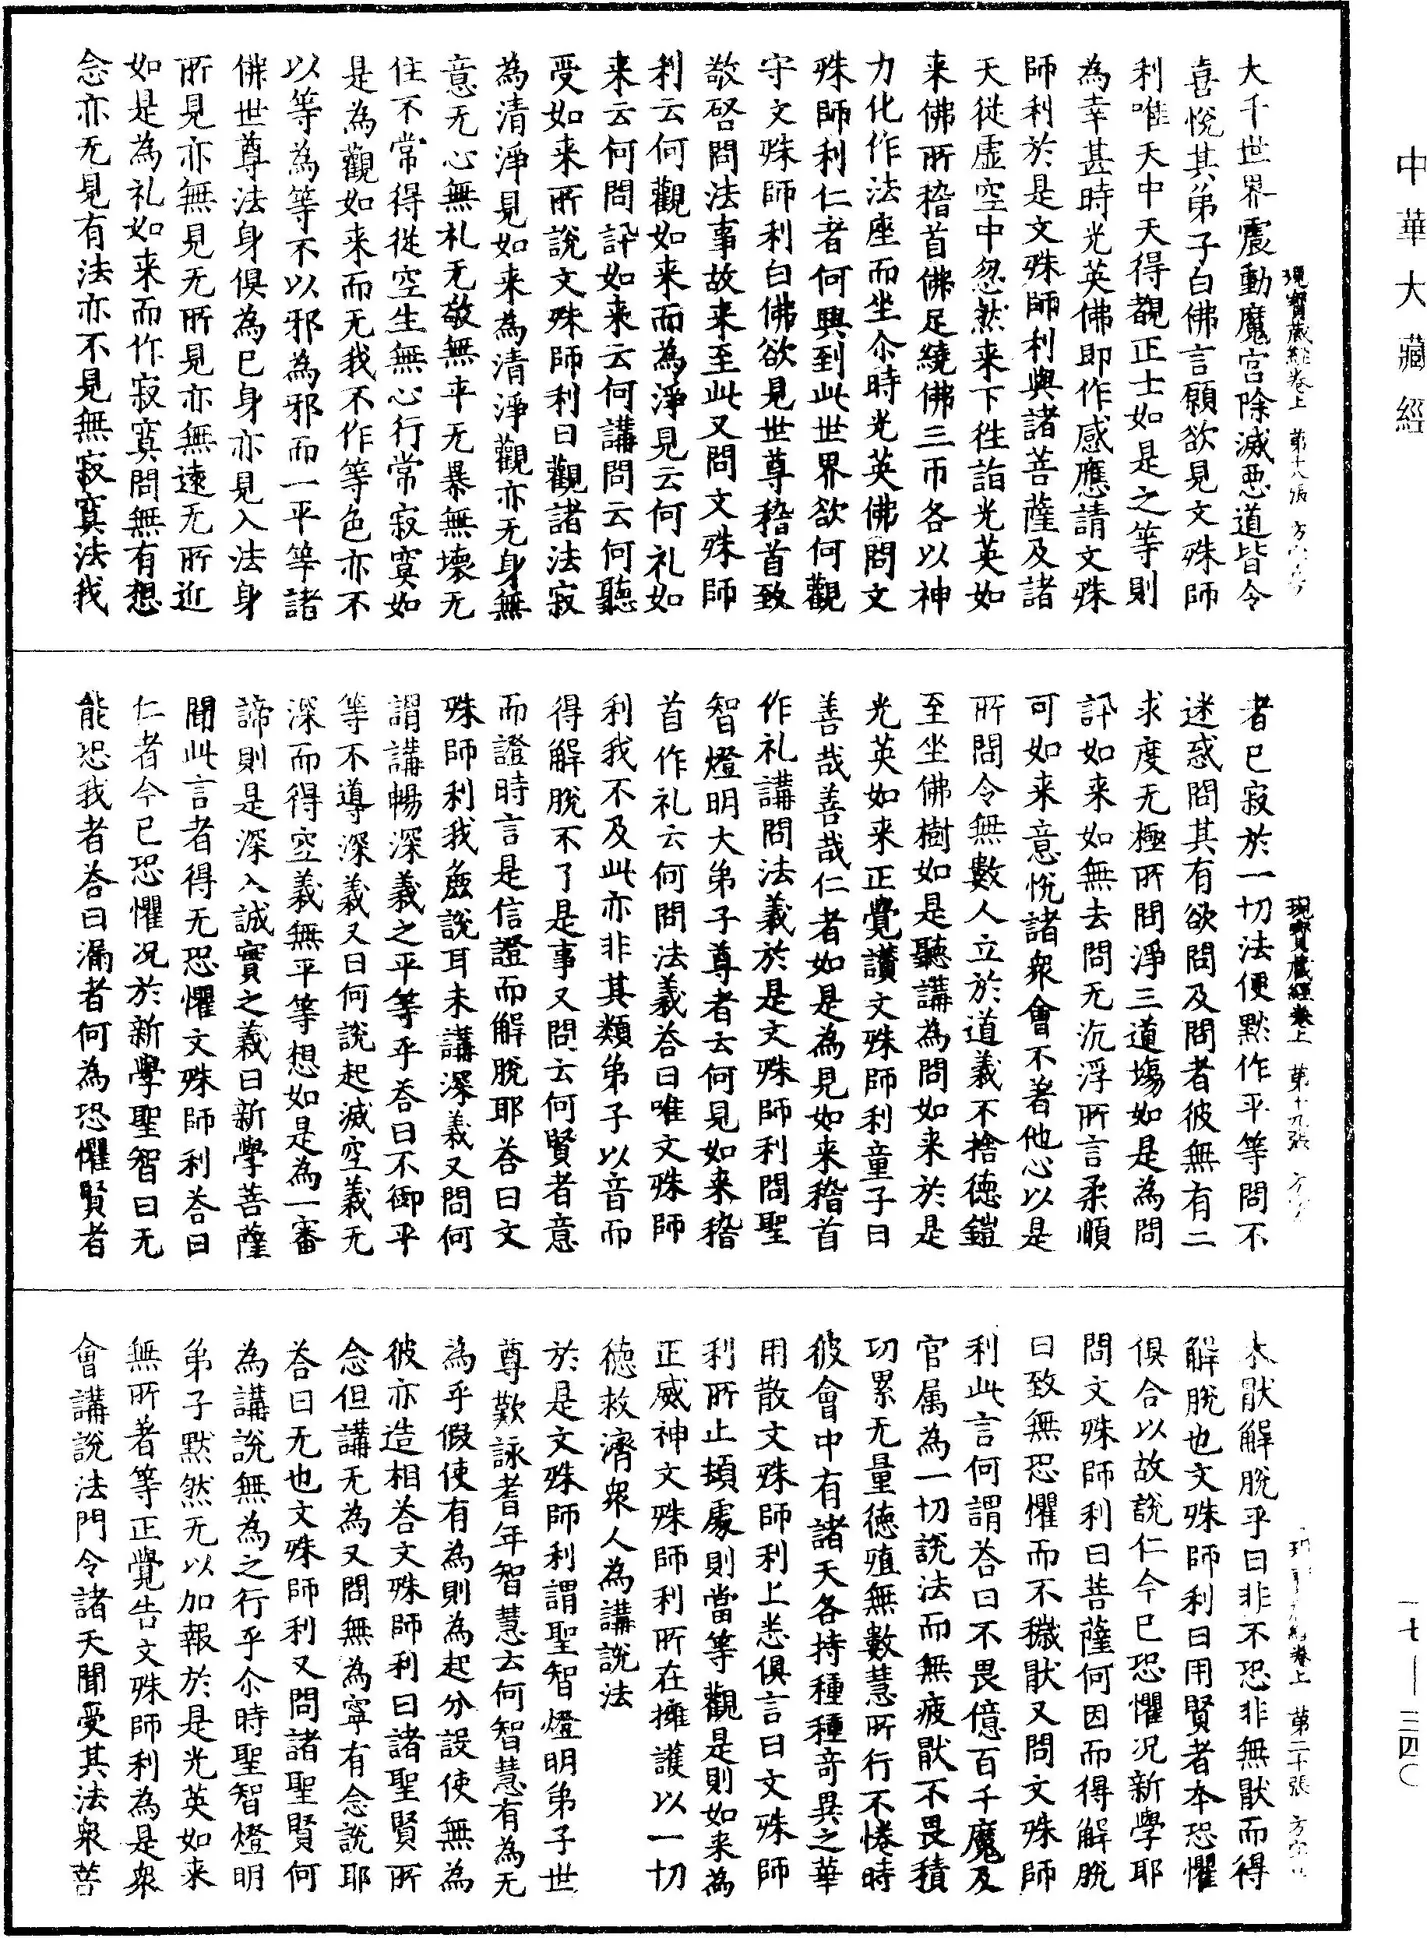 中華大藏經
現寶藏經卷上 第十八張 方
大千世界震動魔宮除滅惡道皆令
喜悅其弟子白佛言願欲見文殊師
利唯天中天得覩正士如是之等則
為幸甚時光英佛即作感應請文殊
師利於是文殊師利與諸菩薩及諸
天從虛空中忽然来下往詣光英如
来佛所稽首佛足繞佛三帀各以神
力化作法座而坐尒時光英佛問文
殊師利仁者何興到此世界欲何觀
守文殊師利白佛欲見世尊稽首致
敬啓問法事故来至此又問文殊師
利云何觀如来而為淨見云何礼如
来云何問訊如来云何講問云何聽
受如来所說文殊師利曰觀諸法寂
為清淨見如来為清淨觀亦无身無
意无心無礼无敬無平无暴無壞无
住不常得從空生無心行常寂寞如
是為觀如来而无我不作等色亦不
以等為等不以邪為邪而一平等諸
佛世尊法身俱為已身亦見入法身
所見亦無見无所見亦無遠无所近
如是為礼如来而作寂寞問無有想
念亦无見有法亦不見無寂寞法我
現寶藏經卷上 第十九張 方
者已寂於一切法便默作平等問不
迷惑問其有欲問及問者彼無有二
求度无極所問淨三道塲如是為問
訊如来如無去問无沉浮所言柔順
可如来意悅諸衆會不著他心以是
所問令無數人立於道義不捨德鎧
至坐佛樹如是聽講為問如来於是
光英如来正覺讚文殊師利童子曰
善哉善哉仁者如是為見如来稽首
作礼講問法義於是文殊師利問聖
智燈明大弟子尊者云何見如来稽
首作礼云何問法義荅曰唯文殊師
利我不及此亦非其類弟子以音而
得解脫不了是事又問云何賢者意
而證時言是信證而解脫耶荅曰文
殊師利我麁說耳未講深義又問何
謂講暢深義之平等乎荅曰不御平
等不導深義又曰何說起滅空義无
深而得空義無平等想如是為一審
諦則是深入誠實之義曰新學菩薩
聞此言者得无恐懼文殊師利荅曰
仁者今已恐懼况於新學聖智曰无
能恐我者荅曰漏者何為恐懼賢者
卷上 第二十張 方
本猒解脫乎曰非不恐非無猒而得
解脫也文殊師利曰用賢者本恐懼
俱合以故說仁今已恐懼况新學耶
問文殊師利曰菩薩何因而得解脫
曰致無恐懼而不穢猒又問文殊師
利此言何謂荅曰不畏億百千魔及
官属為一切說法而無疲猒不畏積
功累无量德殖無數慧所行不惓時
彼會中有諸天各持種種竒異之華
用散文殊師利上悉俱言曰文殊師
利所止頓處則當等觀是則如来為
正威神文殊師利所在擁護以一切
德救濟衆人為講說法
於是文殊師利謂聖智燈明弟子世
尊歎詠耆年智慧云何智慧有為无
為乎假使有為則為起分設使無為
彼亦造相荅文殊師利曰諸聖賢所
念但講无為又問無為寜有念說耶
荅曰无也文殊師利又問諸聖賢何
為講說無為之行乎尒時聖智燈明
弟子默然无以加報於是光英如来
無所著等正覺告文殊師利為是衆
會講說法門令諸天聞受其法衆菩
一七—三四〇